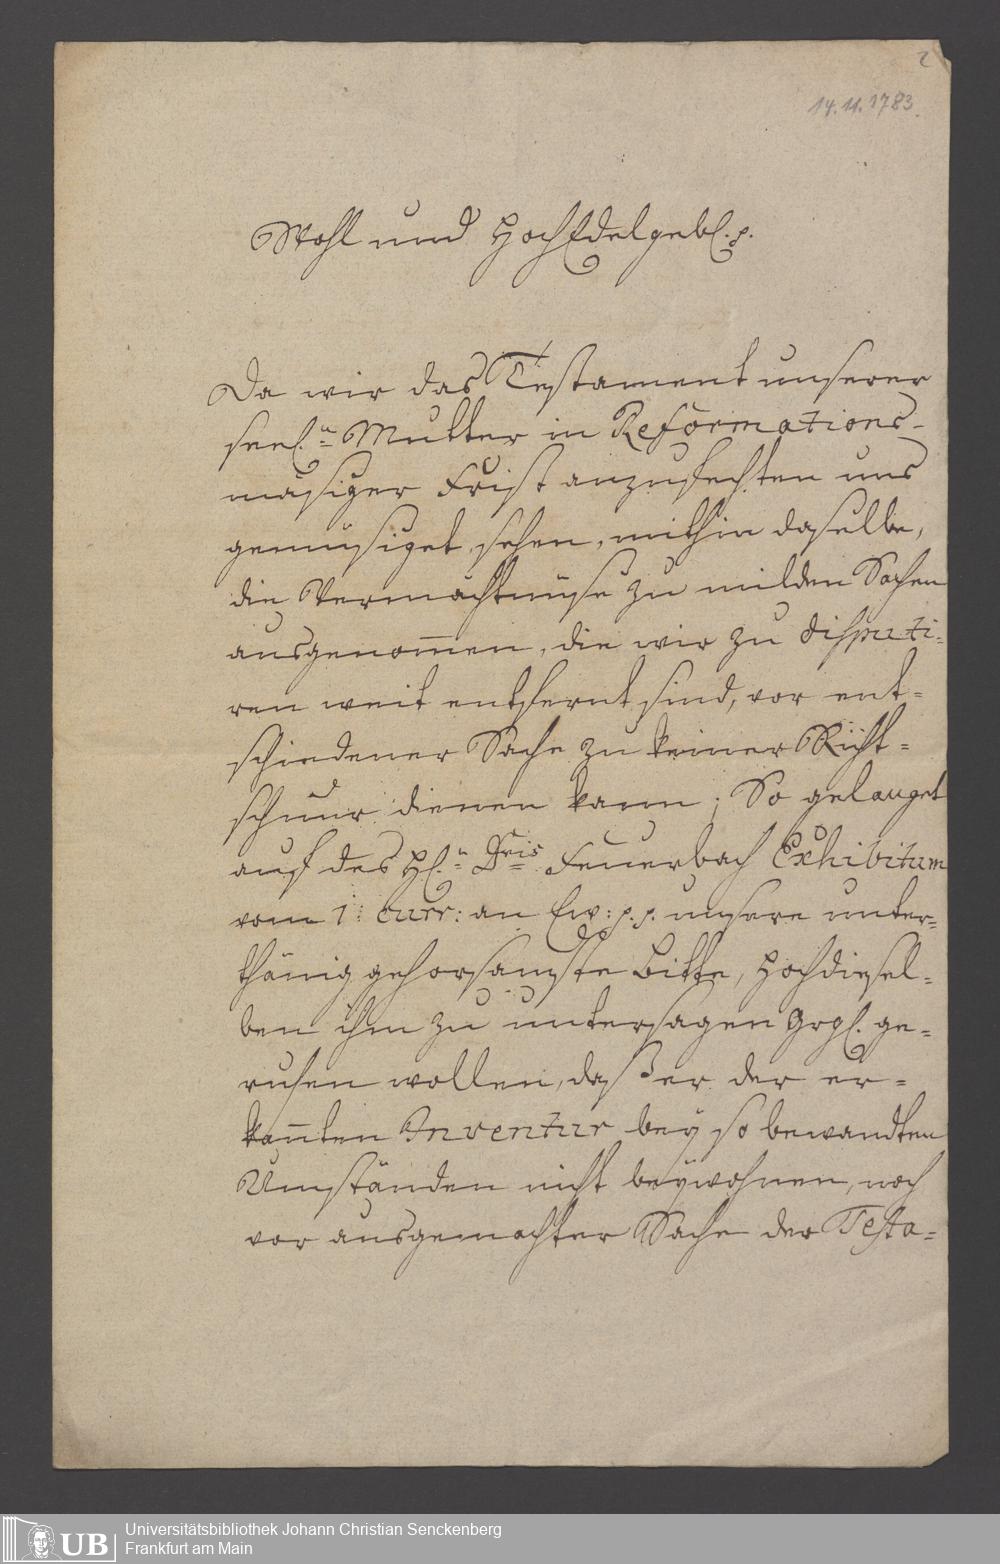 2
14.11.1783.
Wohl und HochEdelgebl. p.
Da wir das Testament unserer
seel.n Mutter in Reformations-
mäsiger Frist anzufechten uns
gemüsiget sehen, mithin daselbe,
die Vermächtnüse zu milden Sachen
ausgenom̄en, die wir zu disputi-
ren weit entfernt sind, vor ent-
schiedener Sache zu keiner Richt-
schnur dienen kann; So gelanget
auf des H.n Dris Feuerbach Exhibitum
vom 1. curr: an Ew: p. p. unsere unter-
thänig gehorsamste Bitte, Hochdiesel-
ben ihm zu untersagen Grgl. ge-
ruhen wollen, daß er der er-
kan̄ten Inventur bey so bewandten
Umständen nicht beywohnen, noch
vor ausgemachter Sache der Testa-
UB
Universitätsbibliothek Johann Christian Senckenberg
Frankfurt am Main